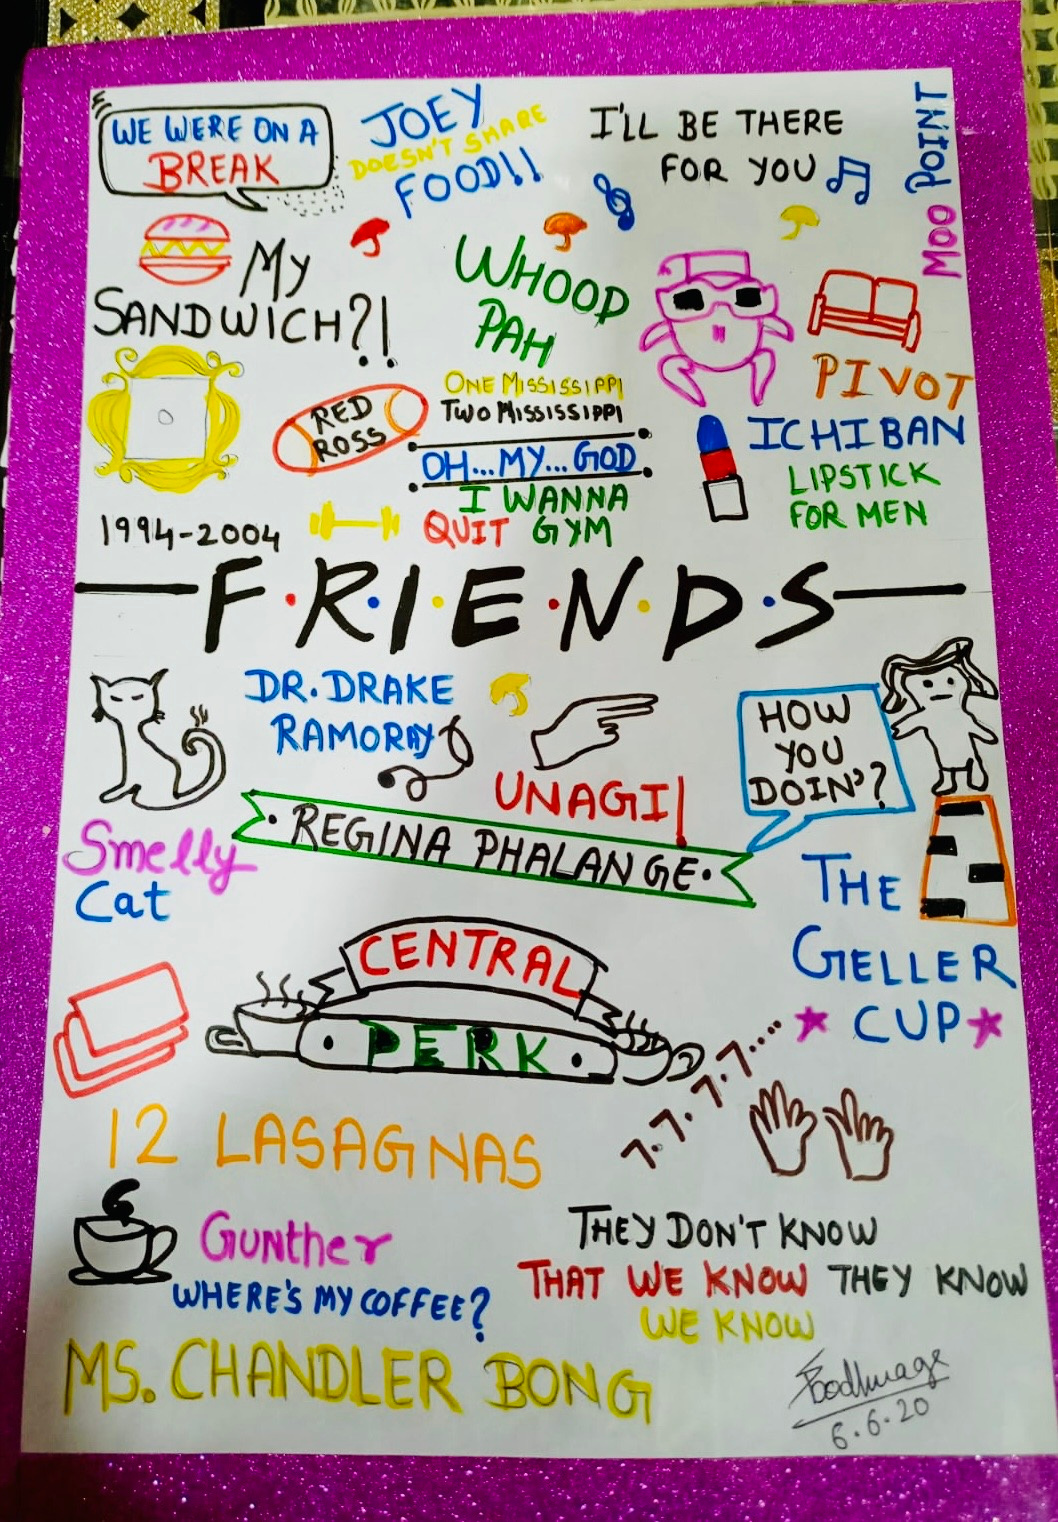 WE WERE ON A
BREAK
JOEY
DOESN'T SHARE
FOOD!!
I'LL BE THERE
FOR YOU
MOO POINT
MY
SANDWICH?!
WHOOP
PAH
PIVOT
RED
ROSS
ONE MISSISSIPPI
TWO MISSISSIPPI
OH...MY...GOD
I WANNA
QUIT GYM
ICHIBAN
LIPSTICK
FOR MEN
1994-2004
F·R·I·E·N·D·S
DR. DRAKE
RAMORAY
UNAGI
HOW
YOU
DOIN'?
·REGINA PHALANGE·
Smelly
Cat
THE
GELLER
CUP
CENTRAL
PERK
7.7.7.7....
12 LASAGNAS
GUNTHER
WHERE'S MY COFFEE?
THEY DON'T KNOW
THAT WE KNOW THEY KNOW
WE KNOW
MS. CHANDLER BONG
6.6.20